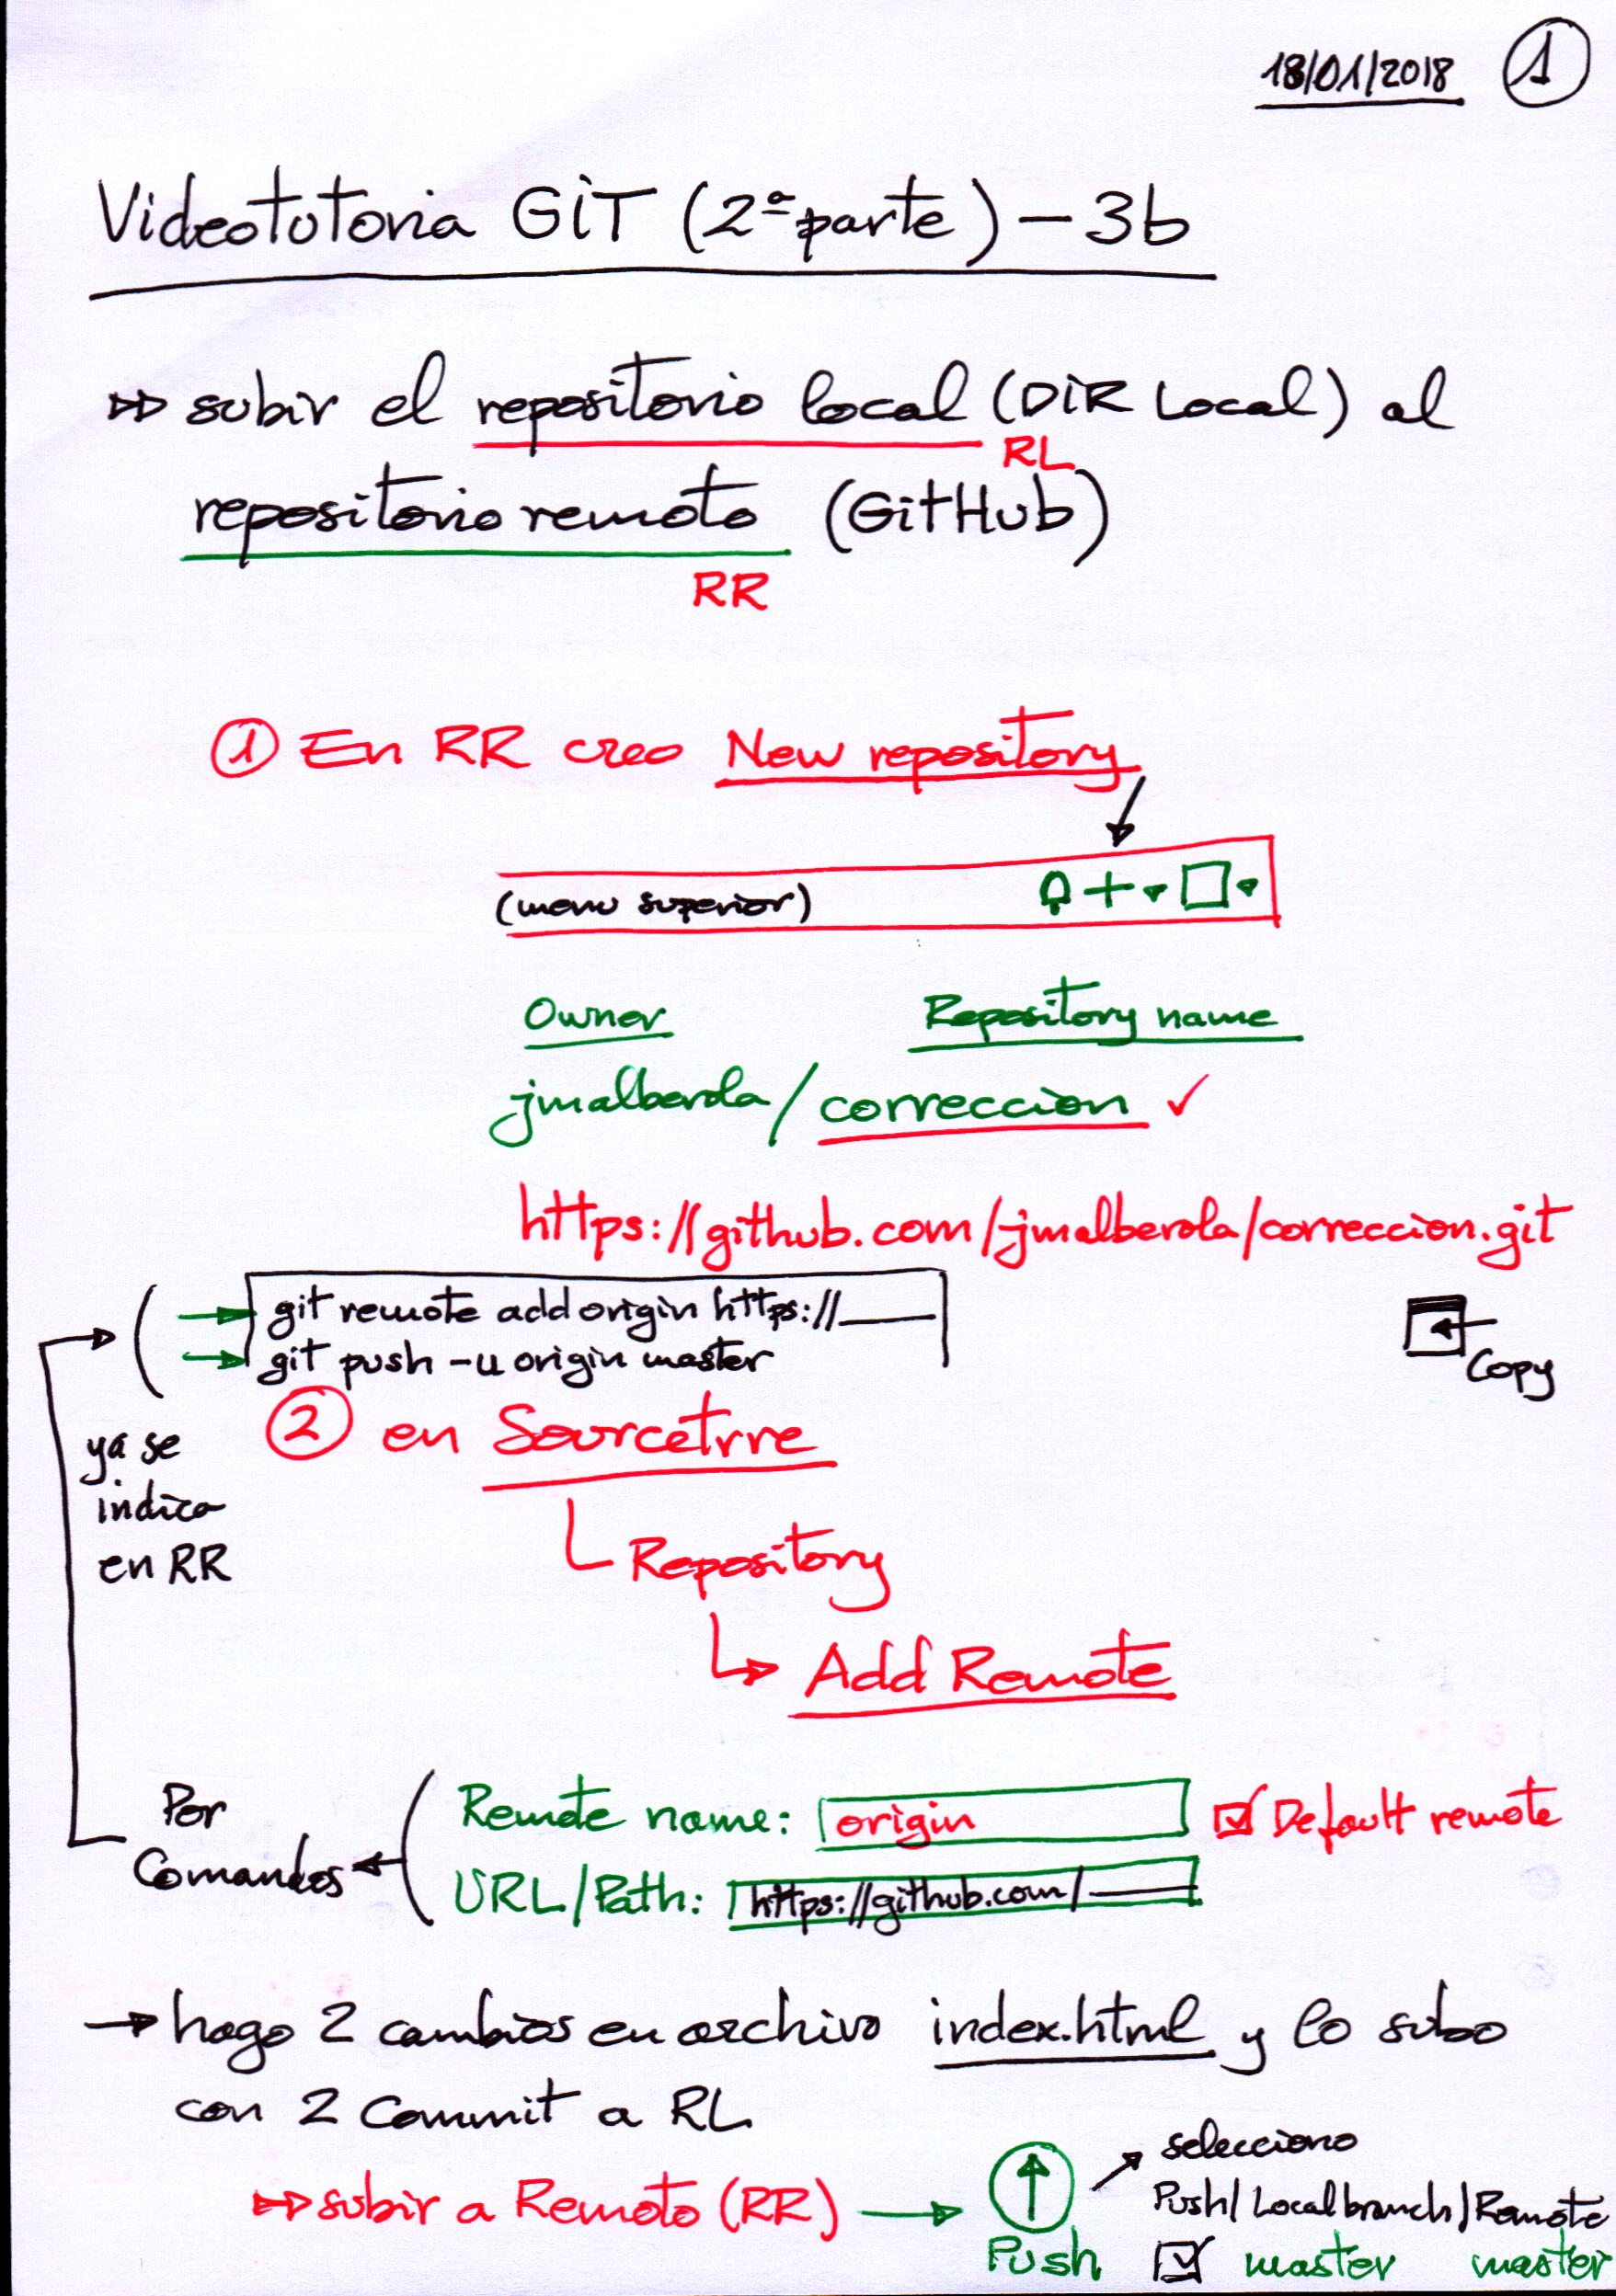 18/01/2018 1
Videotutoria GIT (2ª parte) - 3b
subir el repositorio local (DIR Local) al
RL
repositorio remoto (GitHub)
RR
1 En RR creo New repository
(menu superior)
Owner Repository name
jmalberola / correccion ✓
https://github.com/jmalberola/correccion.git
git remote add origin https://____
git push -u origin master
Copy
2 en Sourcetrre
ya se
indica
en RR
Repository
Add Remote
Por
Comandos
Remote name: origin ☑ Default remote
URL/Path: https://github.com/____
→ hago 2 cambios en archivo index.html y lo subo
con 2 Commit a RL
subir a Remoto (RR) → Push
selecciono
Push/Local branch/Remote
☑ master master